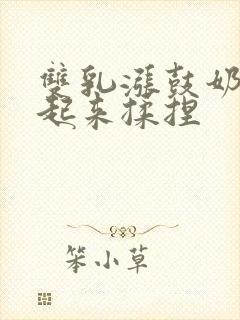 雙乳漲鼓奶
起来揉捏
笨小草